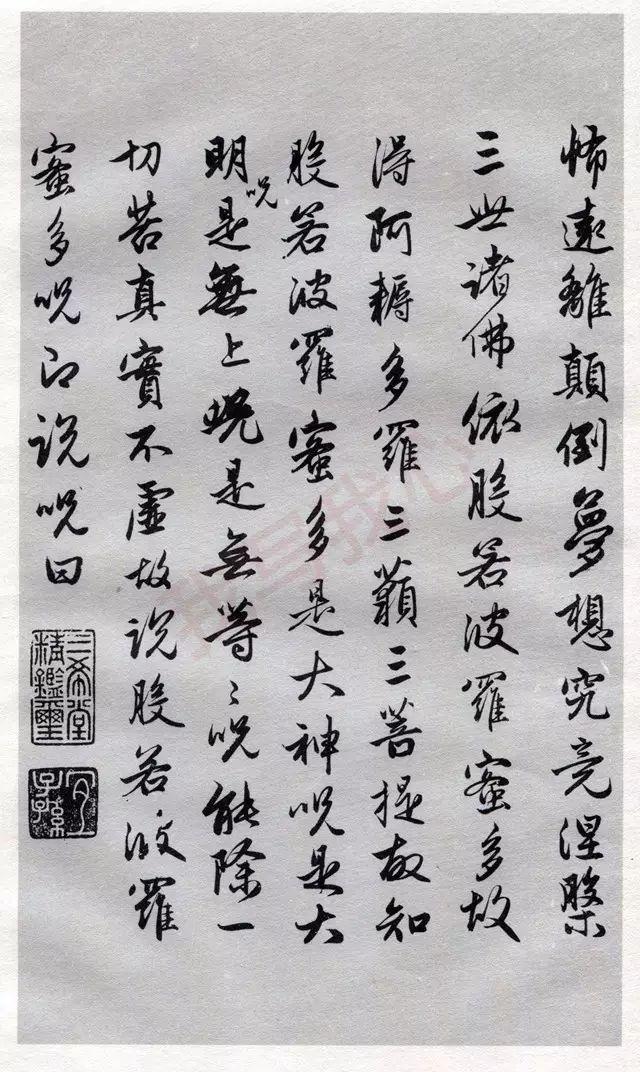 怖遠離顛倒夢想究竟涅槃
三世諸佛依般若波羅蜜多故
得阿耨多羅三藐三菩提故知
般若波羅蜜多是大神呪是大
明呪是無上呪是無等〻呪能除一
切苦真實不虛故說般若波羅
蜜多呪即說呪曰
三希堂精鑑璽
宜子孫
我写我心